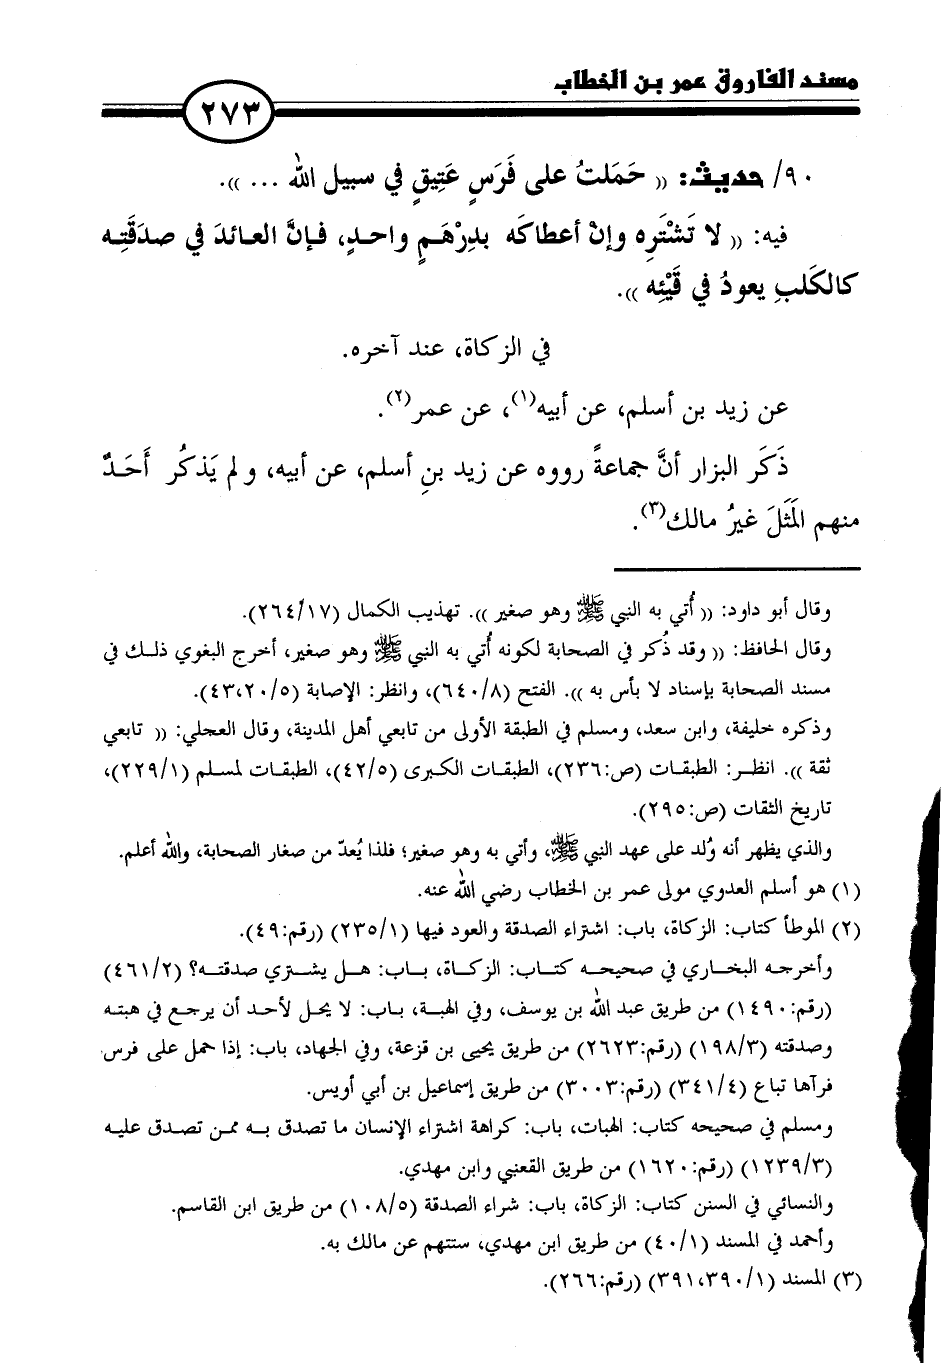 مسند الفاروق عمر بن الخطاب
٢٧٣
٩٠/ حديث: (( حَمَلتُ على فَرَسٍ عَتِيقٍ في سبيل الله ... )).
فيه: (( لا تَشْتَرِه وإنْ أعطاكَه بدِرْهَمٍ واحدٍ، فإنَّ العائدَ في صدَقَتِه
كالكَلبِ يعودُ في قَيْئِه )).
في الزكاة، عند آخره.
عن زيد بن أسلم، عن أبيه(١)، عن عمر(٢).
ذَكَر البزار أنَّ جماعةً رووه عن زيد بنِ أسلم، عن أبيه، ولم يَذكُر أَحَدٌ
منهم المَثَلَ غيرُ مالك(٣).
وقال أبو داود: (( أُتي به النبي ﷺ وهو صغير )). تهذيب الكمال (٢٦٤/١٧).
وقال الحافظ: (( وقد ذُكر في الصحابة لكونه أُتي به النبي ﷺ وهو صغير، أخرج البغوي ذلك في
مسند الصحابة بإسناد لا بأس به )). الفتح (٦٤٠/٨)، وانظر: الإصابة (٤٣،٢٠/٥).
وذكره خليفة، وابن سعد، ومسلم في الطبقة الأولى من تابعي أهل المدينة، وقال العجلي: (( تابعي
ثقة )). انظر: الطبقات (ص:٢٣٦)، الطبقات الكبرى (٤٢/٥)، الطبقات لمسلم (٢٢٩/١)،
تاريخ الثقات (ص:٢٩٥).
والذي يظهر أنه وُلد على عهد النبي ﷺ، وأتي به وهو صغير؛ فلذا يُعدّ من صغار الصحابة، والله أعلم.
(١) هو أسلم العدوي مولى عمر بن الخطاب رضي الله عنه.
(٢) الموطأ كتاب: الزكاة، باب: اشتراء الصدقة والعود فيها (٢٣٥/١) (رقم:٤٩).
وأخرجه البخاري في صحيحه كتاب: الزكاة، باب: هل يشتري صدقته؟ (٤٦١/٢)
(رقم:١٤٩٠) من طريق عبد الله بن يوسف، وفي الهبة، باب: لا يحل لأحد أن يرجع في هبته
وصدقته (١٩٨/٣) (رقم:٢٦٢٣) من طريق يحيى بن قزعة، وفي الجهاد، باب: إذا حمل على فرس
فرآها تباع (٣٤١/٤) (رقم:٣٠٠٣) من طريق إسماعيل بن أبي أويس.
ومسلم في صحيحه كتاب: الهبات، باب: كراهة اشتراء الإنسان ما تصدق به ممن تصدق عليه
(١٢٣٩/٣) (رقم:١٦٢٠) من طريق القعنبي وابن مهدي.
والنسائي في السنن كتاب: الزكاة، باب: شراء الصدقة (١٠٨/٥) من طريق ابن القاسم.
وأحمد في المسند (٤٠/١) من طريق ابن مهدي، ستتهم عن مالك به.
(٣) المسند (٣٩١،٣٩٠/١) (رقم:٢٦٦).